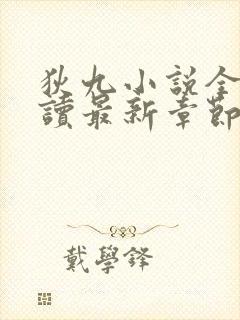 狄九小説全
讀最新章節
戴學鋒